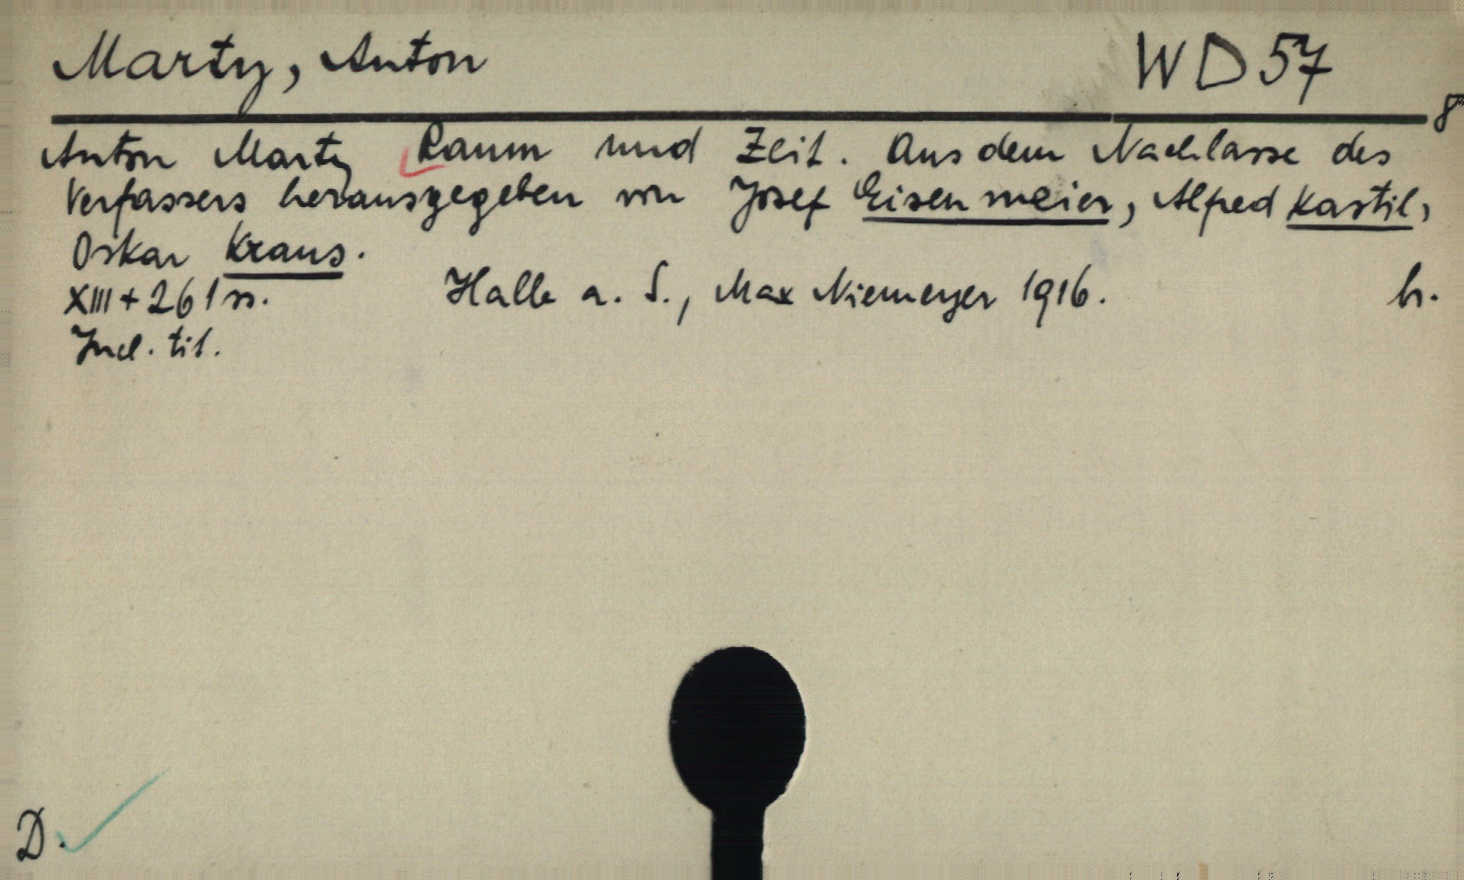 Marty, Anton WD 57
8°
Anton Marty Raum und Zeit. Aus dem Nachlasse des
Verfassers herausgegeben von Josef Eisenmeier, Alfred Kastil,
Oskar Kraus.
XIII + 261 ss. Halle a. S., Max Niemeyer 1916. h.
Incl. tit.
D.